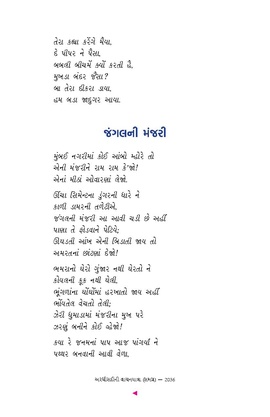 તેરા ક્યા કરેંગે મૈયા,
દે પીપર ને પૈસા,
બબલી બીચમેં ક્યોં કરતી હૈ,
મુખડા બંદર જૈસા?
બા તેરા ઠીકરા ડાવા,
હમ બડા જાદુગર આવા.
જંગલની મંજરી
મુંબઈ નગરીમાં કોઈ આંબો મ્હોરે તો
એની મંજરીને રામ રામ કે'જો!
એનાં મીઠાં ઓવારણાં લેજો.
ઊંચા સિમેન્ટના ડુંગરની ધારે ને
કાળી ડામરની તળેટીએ,
જંગલની મંજરી આ આવી ચડી છે અહીં
પાણા તે ફોડવાને પેટિયે;
ઊઘડતી આંખ એની બિડાતી જાય તો
અમરતનાં છાંટણાં દેજો!
ભમરાનો ઘેરો ગુંજાર નથી ઘેરતો ને
કોયલની કૂક નથી ઘેલી,
ભૂંગળાંના ઘોંઘોંમાં હરખાતો જાય અહીં
ભોંયતેલ વેચતો તેલી;
ઝેરી ધુમાડામાં મંજરીના મુખ પરે
ઝરણું બનીને કોઈ વ્હેજો!
કયા રે જનમનાં પાપ આજ પાંગર્યાં ને
પથ્થર બનવાની આવી વેળા,
અરધીસદીની વાચનયાત્રા (ઇમેજ) — 2036